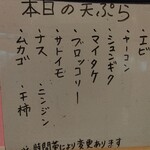 本日の天ぷら
・エビ
・サーコン
・シュンギク
・マイタケ
・ブロッコリー
・サトイモ
・ナス
・ムカゴ
・ニンジン
・干柿
時間帯により変更あります